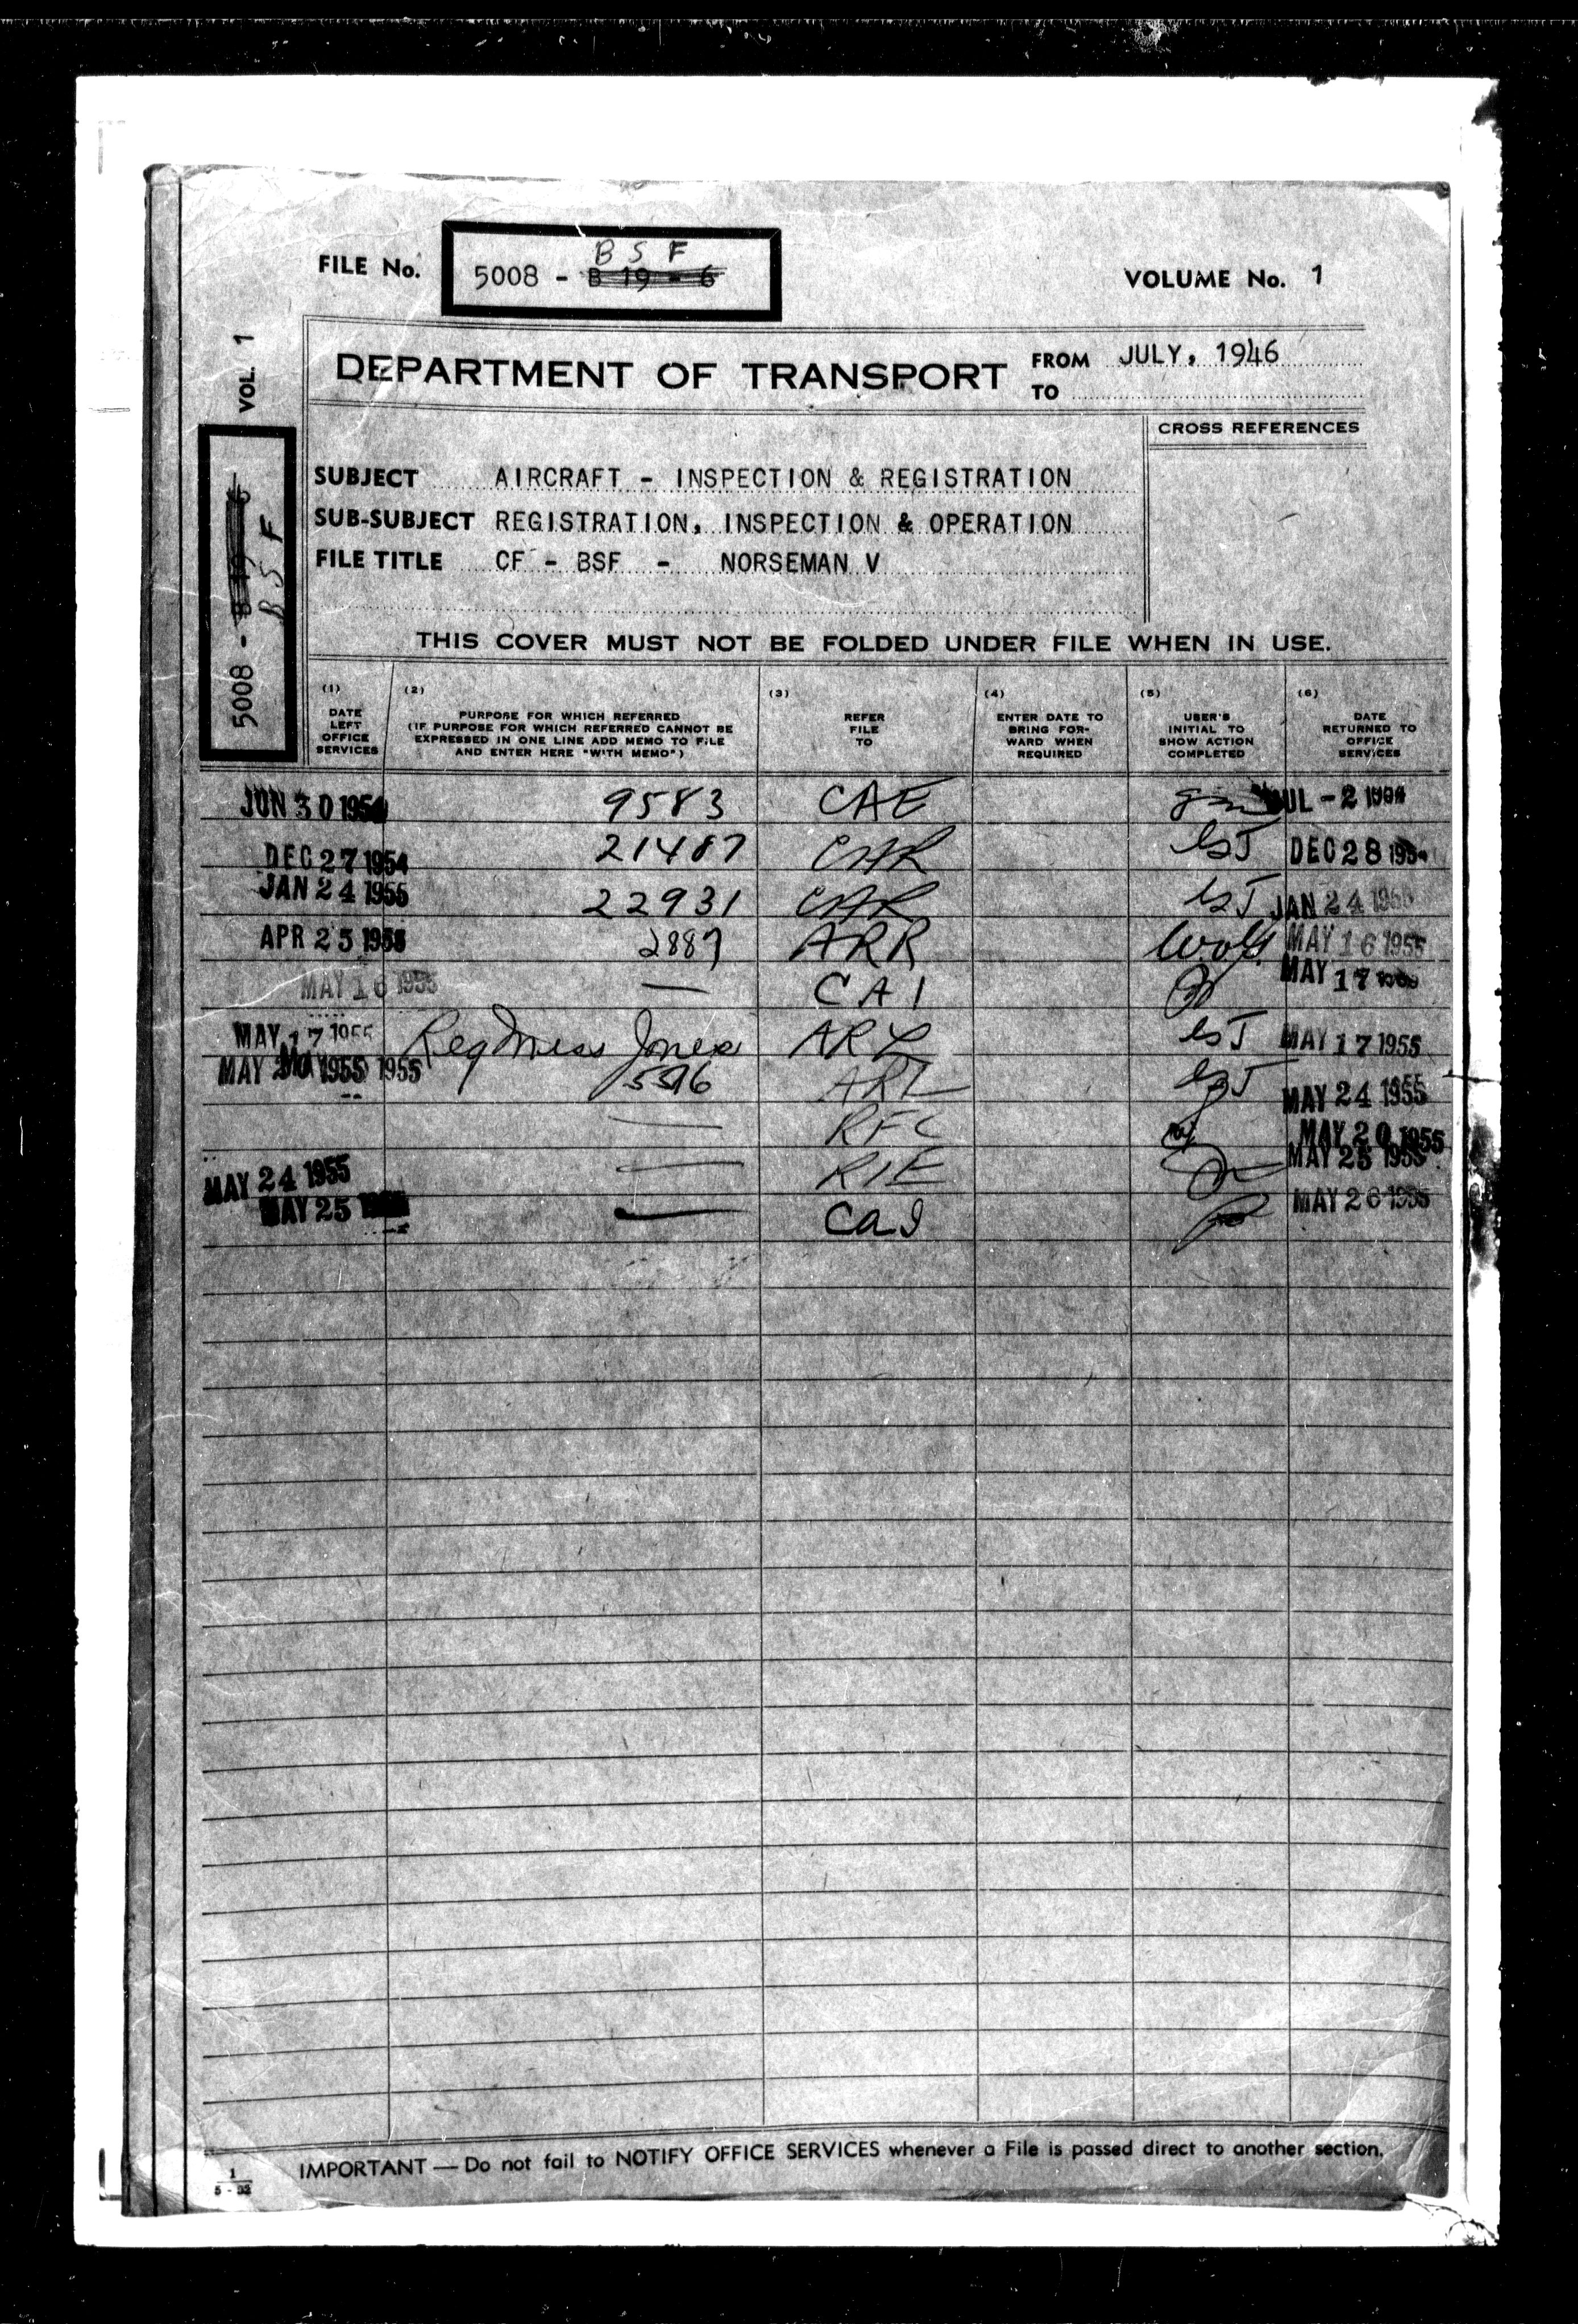 B S F
FILE No. 5008 - B 19 - 6
VOLUME No. 1
VOL. 1
5008 - B 19 - 6
B S F
DEPARTMENT OF TRANSPORT
FROM JULY, 1946
TO
CROSS REFERENCES
SUBJECT AIRCRAFT - INSPECTION & REGISTRATION
SUB-SUBJECT REGISTRATION, INSPECTION & OPERATION
FILE TITLE CF - BSF - NORSEMAN V
THIS COVER MUST NOT BE FOLDED UNDER FILE WHEN IN USE.
(1) DATE LEFT OFFICE SERVICES
(2) PURPOSE FOR WHICH REFERRED
(IF PURPOSE FOR WHICH REFERRED CANNOT BE
EXPRESSED IN ONE LINE ADD MEMO TO FILE
AND ENTER HERE "WITH MEMO")
(3) REFER FILE TO
(4) ENTER DATE TO BRING FOR-WARD WHEN REQUIRED
(5) USER'S INITIAL TO SHOW ACTION COMPLETED
(6) DATE RETURNED TO OFFICE SERVICES
JUN 30 1954 9583 CAE JUL - 2
DEC 27 1954 21487 CAR DEC 28 1954
JAN 24 1955 22931 CAR JAN 24 1955
APR 25 1955 2887 ARR MAY 16 1955
MAY 16 1955 — CAI MAY 17
MAY 17 1955 Req Miss Jones MAY 17 1955
MAY 1955 5596 MAY 24 1955
— RFC MAY 20 1955
MAY 24 1955 — RIE MAY 25 1955
MAY 25 — CAI MAY 26 1955
IMPORTANT — Do not fail to NOTIFY OFFICE SERVICES whenever a File is passed direct to another section.